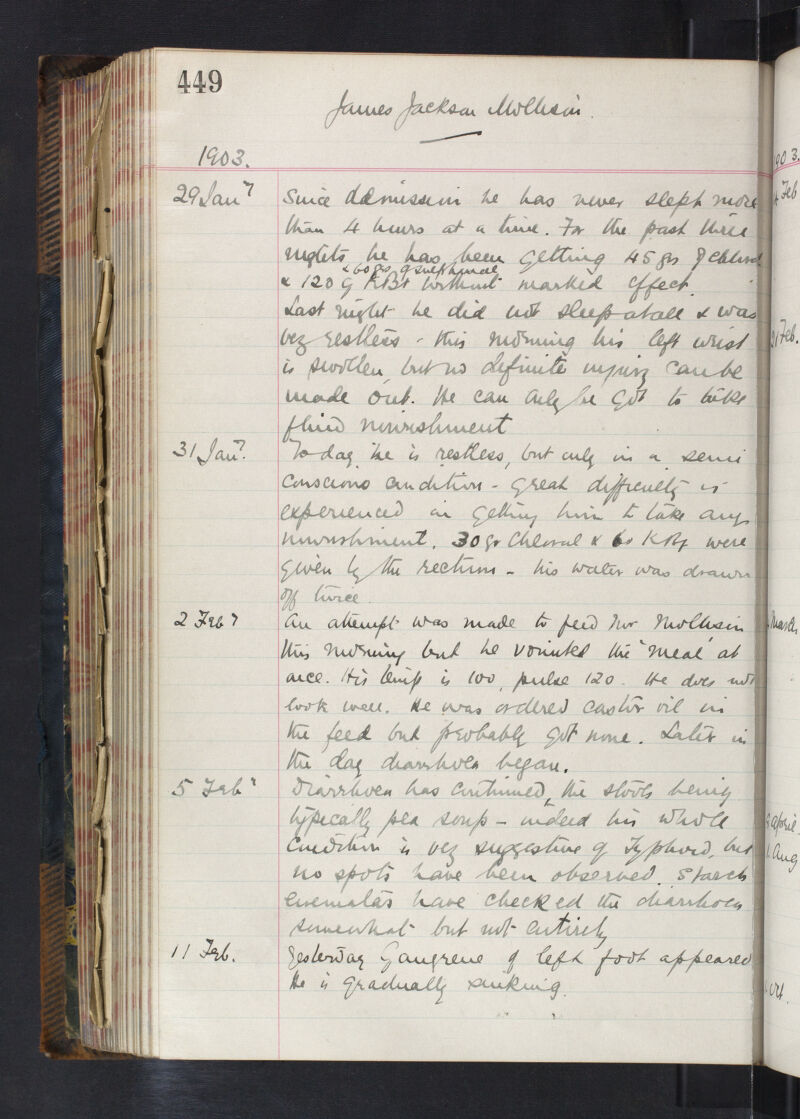 449
James Jackson Mollison.
1903.
29 Jany Since admission he has never slept more
than 4 hours at a time. For the past three
nights he has been getting 45 grs of chloral
& 60 grs of sulphonal
& 120 of KBr without marked effect.
Last night he did not sleep at all & was
very restless - this morning his left wrist
is swollen, but no definite injury can be
made out. He can only be got to take
fluid nourishment
31 Jany. To day he is restless, but only in a semi
conscious condition - great difficulty is
experienced in getting him to take any
nourishment. 30 gr Chloral & 60 KBr were
given by the rectum - his water was drawn
off twice.
2 Feby An attempt was made to feed Mr Mollison
this morning but he vomited the "meal" at
once. His temp is 100, pulse 120. He does not
look well. He was ordered castor oil in
the feed but probably got none. Later in
the day diarrhoea began.
5 Feby Diarrhoea has continued, the stools being
typically pea soup - indeed his whole
condition is very suggestive of Typhoid, but
no spots have been observed. Starch
enematas have checked the diarrhoea
somewhat but not entirely
11 Feb. Yesterday Gangrene of left foot appeared
He is gradually sinking.
903.
Feb
21 Feb.
March
April
Aug
Oct.